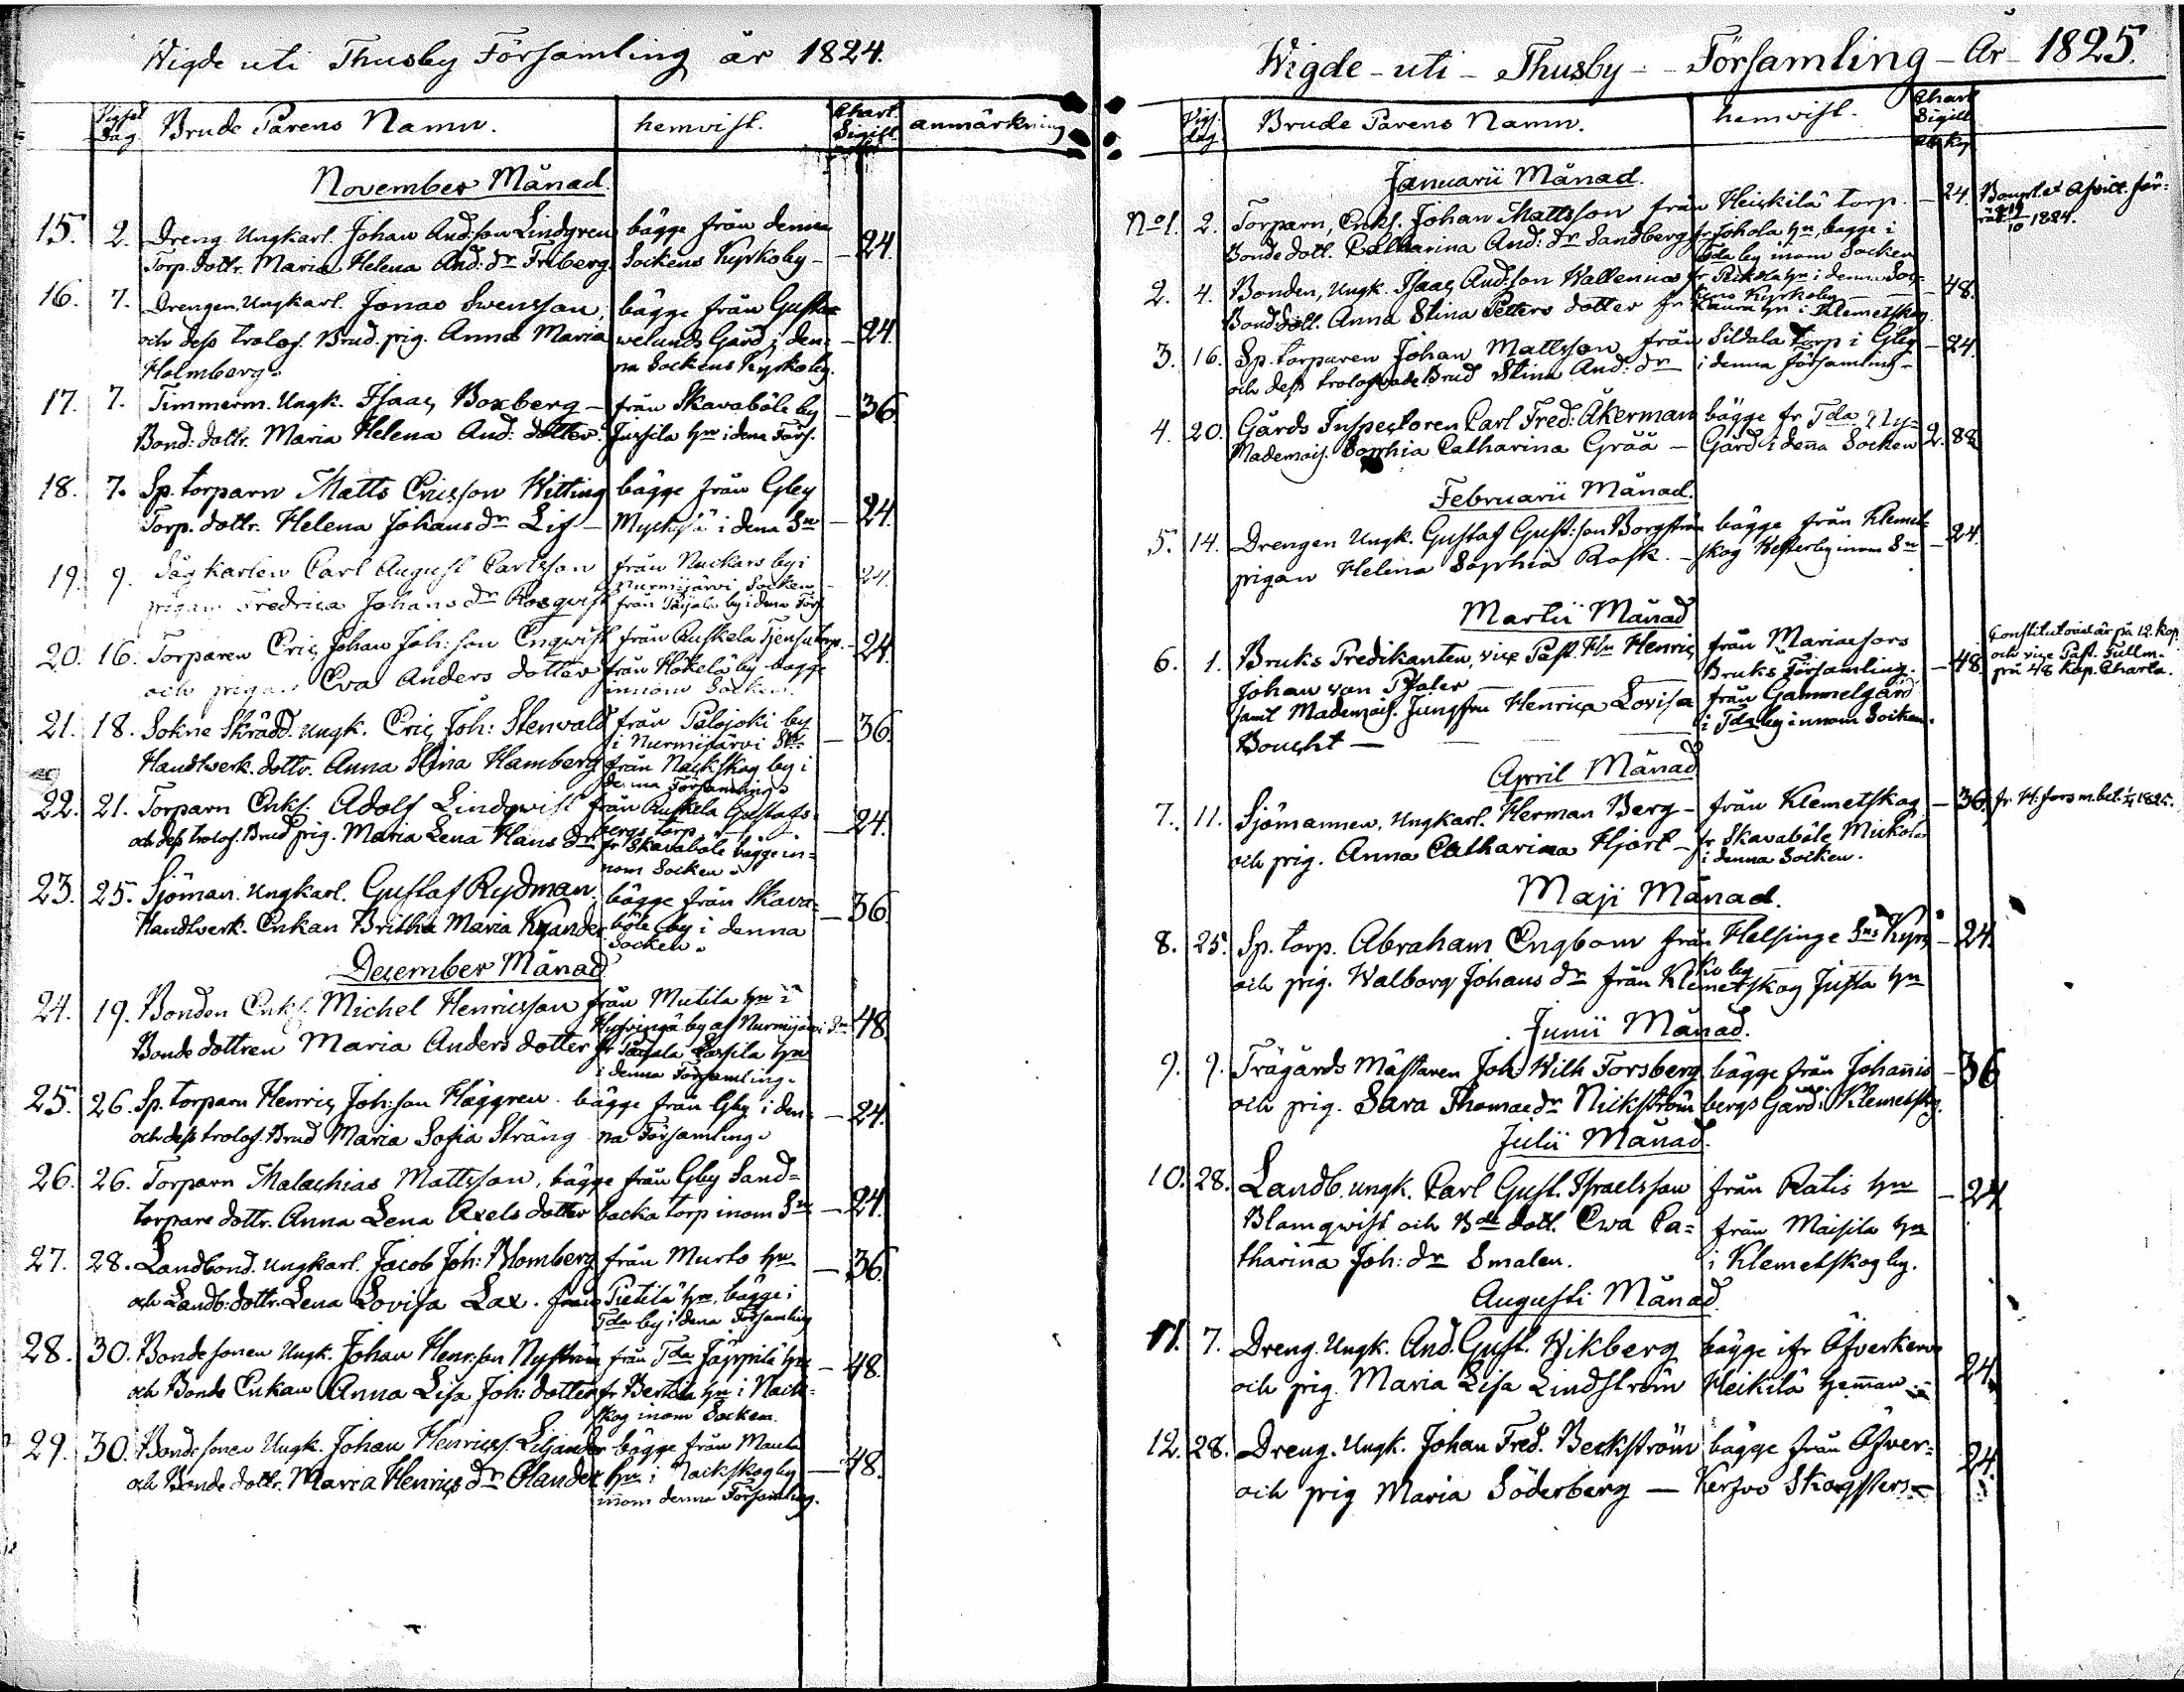 Wigde uti Thusby Församling år 1824.
Vigsel Dag. Brude Parens Namn. hemvist. Chart. Sigill. anmärkning
November Månad.
15. 2. Dreng Ungkarl. Johan And:son Lindgren bägge från denna
Torp. dottr. Maria Helena And: dr Friberg. Sockens Kyrkoby – 24
16. 7. Drengen, Ungkarl. Jonas Swensson, bägge från Gustaf
och dess trolof. Brud. pig. Anna Maria welunds Gård i den- – 24.
Holmberg. na Sockens Kyrkoby.
17. 7. Timmerm. Ungk. Isaac Boxberg – från Skavaböle by – 36
Bond: dottr. Maria Helena And: dotter. Jussila hn i dena Förs.
18. 7. Sp. torparn Matts Ericsson Witting bägge från Gby
Torp. dottr. Helena Johans dr Lif – i dena Sn – 24.
19. 9. Carl August Carlsson från Nuckars by i
Nurmijärvi Socken – 24.
pigan Fredrica Johans dr Rosqvist från Paijala by i dena Förs.
20. 16. Torparen Eric Johan Joh: son Engwist från Ruskela torp. – 24.
och pigan Eva Anders dotter från Hökelä by bägge
innom Socken.
21. 18. Sokne Skrädd. Ungk. Eric Joh: Stenvald från Palojoki by
i Nurmijärvi Sn – 36.
Handtwerk. dottr. Anna Stina Hamberg från Nackskog by i
denna Församling.
22. 21. Torparn Enkl. Adolf Lindqwist från Ruskela Gustafs-
bergs torp – 24.
och dess trolof. Brud pig. Maria Lena Hans dr fr Skavabole bägge in-
nom Socken.
23. 25. Sjöman. Ungkarl. Gustaf Rydman. bägge från Skava-
Handtwerk. Enkan Britha Maria Kyander böle by i denna – 36.
Socken.
December Månad
24. 19. Bonden Enkl. Michel Henricsson från Mutila hn i
Hyfvingä by af Nurmijärvi Sn 48.
Bonde dottren Maria Anders dotter fr Paijala Lassila hn
i denna Församling.
25. 26. Sp. torparn Henric Joh:son Häggren. bägge från Gby i den- – 24.
och dess trolof. Brud Maria Sofia Sträng na Församling.
26. 26. Torparn Malachias Mattsson, bägge från Gby Sand-
torpare dottr. Anna Lena Axels dotter backa torp inom Sn – 24.
27. 28. Landbond. Ungkarl. Jacob Joh: Blomberg från Murto hn – 36.
och Landb: dottr. Lena Lovisa Lax. från Pietilä hn, bägge i
Tda by i dena Församling
28. 30. Bonde sonen Ungk. Johan Henr:son Nyström från Tda Jäppilä hn – 48.
och Bonde Enkan Anna Lisa Joh: dotter fr Bertila hn i Nack-
skog inom Socken.
29. 30. Bonde sonen Ungk. Johan Henricss. Liljander bägge från Maula
och Bonde dottr. Maria Henrics dr Olander hn i Nackskog by – 48.
innom denna Församling.
Wigde – uti – Thusby – Församling – År – 1825.
Vigs. dag. Brude Parens Namn. hemvist. Chart Sigill
Januarii Månad.
No 1. 2. Torparn, Enkl. Johan Mattsson från Heickilä torp. – 24.
10 1824.
Bonde dott. Catharina And: dr Sandberg fr Johola hn, bägge i
Tda by inom Socken
2. 4. Bonden, Ungk. Isaac And:son Wallenius fr hn i denna Soc-
kens Kyrkoby – 48.
Bond. dott. Anna Stina Petters dotter fr Kaura hn i Klemetskog.
3. 16. Sp. torparen Johan Mattsson från Sildala torp i Gby – 24.
och dess trolofvade Brud Stina And: dr i denna Församling –
4. 20. Gårds Inspectoren Carl Fred: Åkerman bägge fr Tda Ny-
Mademois. Sophia Catharina Gråå – Gård i dena Socken 2. 88
Februarii Månad.
5. 14. Drengen Ungk. Gustaf Gust:son Borgström bägge från Klemet-
pigan Helena Sophia Rask. – skog Vesterby inom Sn – 24.
Martii Månad
6. 1. Bruks Predikanten, vice Past. Hr Henric från Mariaefors
Johan von Pfaler Bruks Församling. – 48.
Constitutorial är på 12. kop.
och vice Past. Fullm.
på 48 kop. Charta.
samt Mademois. Jungfru Henrica Lovisa från Gammelgård
Boucht – i Tda by innom Socken.
April Månad
7. 11. Sjömannen, Ungkarl. Herman Berg – från Klemetskog – 36. fr H:fors m. bet. 1/4 1825.
och pig. Anna Catharina Hjort – fr Skavaböle Mickola
i denna Socken.
Maji Månad.
8. 25. Sp. torp. Abraham Engbom från Helsinge Sns Kyr- – 24.
ko by
och pig. Walborg Johans dr från Klemetskog Justa hn
Junii Månad.
9. 9. Trägårds Mästaren Joh: Wilh Forsberg bägge från Johannis – 36
och pig. Sara Thomae dr Nickström bergs Gård i Klemetskog.
Julii Månad.
10. 28. Landb. ungk. Carl Gust. Israelsson från Ratis hn – 24
Blomqvist och Bde dott. Ewa Ca- från Maisila hn
tharina Joh: dr Smalen. i Klemetskog by.
Augusti Månad
11. 7. Dreng. Ungk. And. Gust. Wikberg bägge ifr Öfverkervo
och pig. Maria Lisa Lindström Heikilä heman – 24.
12. 28. Dreng. Ungk. Johan Fred. Beckström bägge från Öfver-
och pig Maria Söderberg – Kerfvo Skogsters – 24.